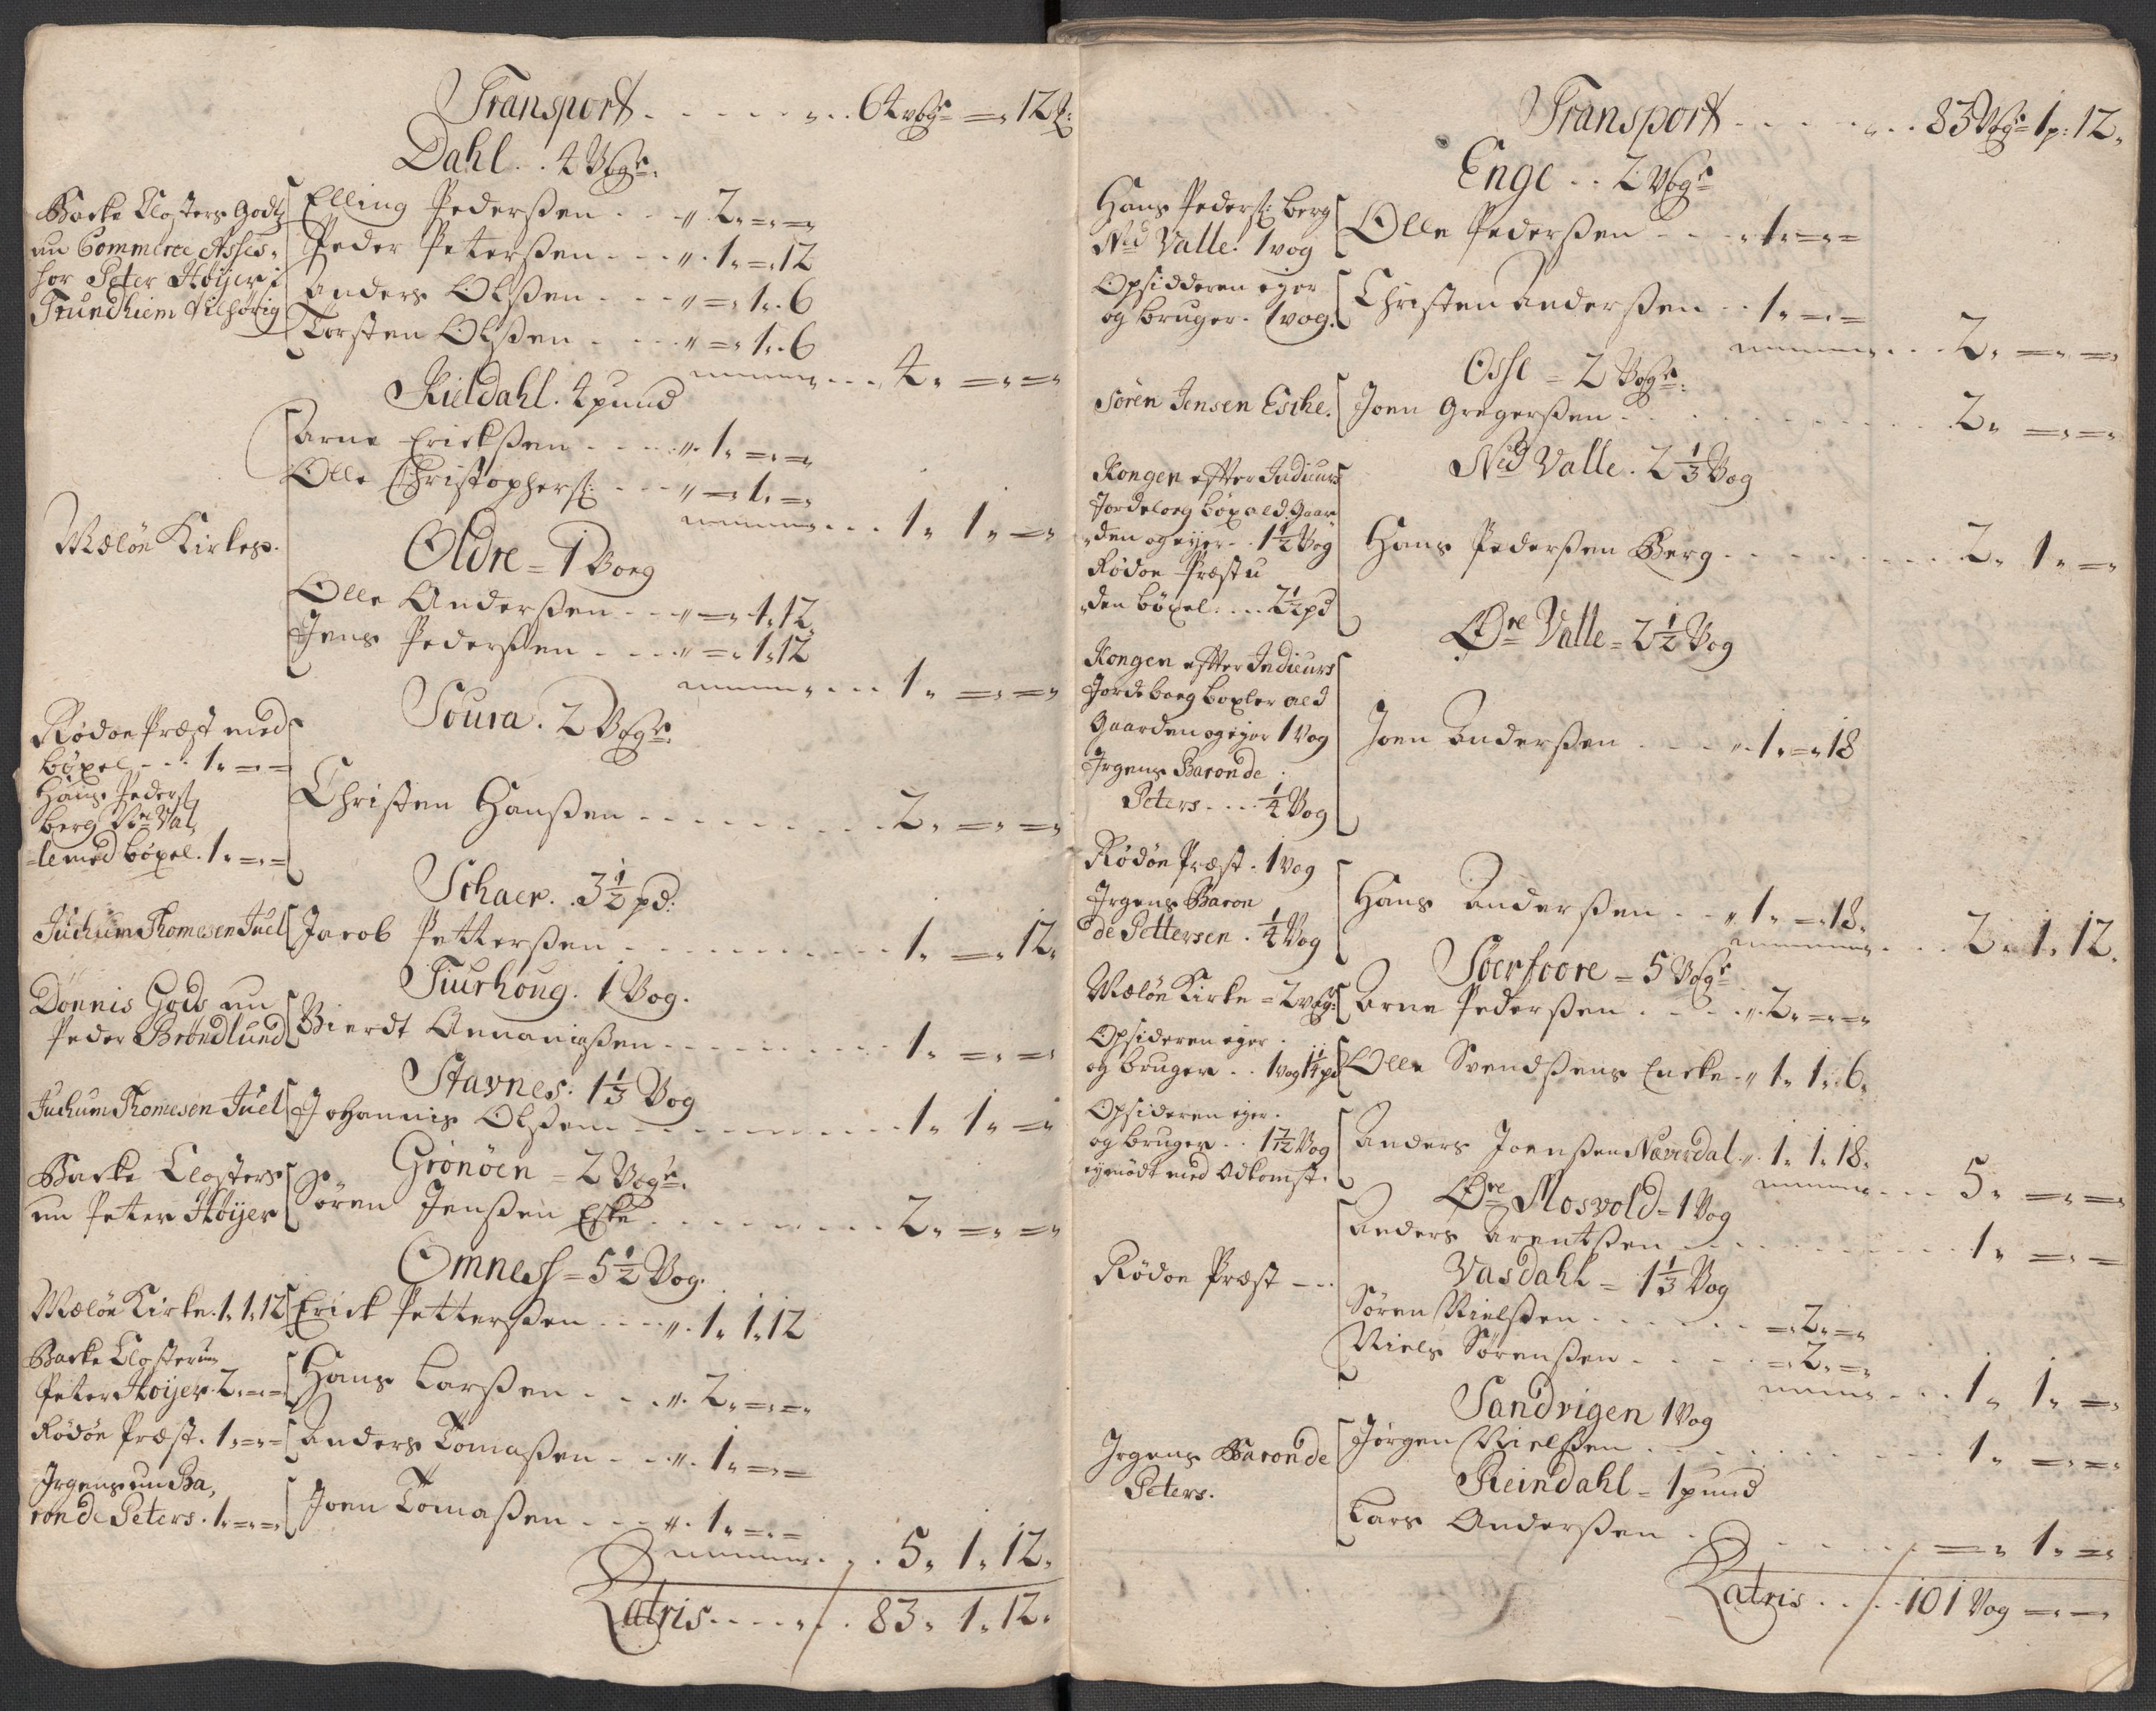 Transport - - - - - „ . . 64 vogr = „ 12 ℔:
Dahl . . 4 Vogr:
Backe Closters Godtz
nu Commerce Asses,
sor Peter Höijer i
Trundhiem tilhörig
Elling Pederßen - - - „ 2„ = „ =
Peder Peterßen - - - „ 1„ = „ 12
Anders Olßen - - - „ = „ 1„ 6
Torsten Olßen - - - „ = „ 1„ 6
- - - 4„ = „ = „
Kieldahl. 4 pund
Arne Erichßen - - - „ 1„ = „ =
Olle Christophers: - - - „ = „ 1„ =
- - - 1„ 1„ = „
Meløe Kirke.
Oldre = 1 Voeg
Olle Anderßen - - - „ = „ 1„ 12
Jens Pederßen - - - „ = „ 1„ 12
- - - 1„ = „ = „
Soura . 2 Vogr:
Rödøe Præst med
böxel - - - 1„ = „ =
Hans Peders:
berg Nr: Val,
=le med böxel . 1„ = „ =
Christen Hanßen - - - - - 2„ = „ = „
Schaer . . 3 1/2 pd:
Juchum Thomesen Juel
Jacob Petterßen - - - - - 1„ = „ 12„
Tiurhoug . 1 Vog .
Dönnis Gods nu
Peder Bröndlund
Bierdt Ananiaßen - - - - - 1„ = „ =
Stavnes: 1 1/3 Vog
Juchum Thomesen Juel
Johannis Olßen - - - - - 1„ 1„ = „
Grönöen = 2 Vogr.
Backe Closters
nu Peter Höijer
Sören Jenßen Eske - - - - - 2„ = „ = „
Omness = 5 1/2 Vog .
Meløe Kirke . 1„ 1„ 12
Erick Petterßen - - - „ 1„ 1„ 12
Backe Closter nu
Peter Höijer . 2„ = „ =
Hans Larßen - - - „ 2„ = „ =
Rödøe Præst . 1„ = „ =
Anders Tomaßen - - - „ 1„ = „ =
Irgens nu Ba,
ron de Peters . 1„ = „ =
Joen Tomaßen - - - „ 1„ = „ =
- - - 5„ 1„ 12„
Latris - - - - - 83„ 1„ 12„
Transport - - - - - „ . . 83 Vogr 1 p: 12„
Enge . . 2 Vogr
Hans Peders: berg
Ned Valle . 1 vog
Olle Pederßen - - - „ 1„ = „ =
Opsidderen eger
og bruger . 1 vog .
Christen Anderßen - - 1„ = „ =
- - - 2„ = „ = „
Osse = 2 Vogr:
Sören Jensen Esche .
Joen Gregerßen - - - - - 2„ = „ = „
Ned Valle . 2 1/3 Vog
Kongen effter Indicurs
Jordeboeg böxel ald Gaar,
„den og eyer - . 1 1/2 Vog
Rödøe Præst u
„den böxel . . . 2 1/2 pd
Hans Pederßen Berg - - - - - 2„ 1„ = „
Øre Valle = 2 1/2 Vog
Kongen effter Indicurs
Jordeboeg boxler ald
Gaarden og eyer 1 Vog
Irgens Baron de
Peters - - - 1/4 Vog
Joen Anderßen - - - „ 1„ = „ 18
Rödøe Præst . 1 Vog
Irgens Baron
de Pettersen . 1/4 Vog
Hans Anderßen - - „ 1„ = „ 18„
- - - 2„ 1„ 12„
Söerfoore = 5 Vogr
Meløe Kirke = 2 vogr:
Arne Pederßen - - - „ 2„ = „ =
Opsideren eger .
og bruger . . 1 vog 1 1/4 pd
Olle Svendßens Encke - „ 1„ 1„ 6„
Opsideren eger .
og bruger . . 1 1/2 Vog
Anders Joenßen Næverdal „ 1„ 1„ 18„
- - - 5„ = „ = „
Øre Mosvold = 1 Vog
Anders Arentßen - - - - - 1„ = „ =
Vasdahl = 1 1/3 Vog
Rödøe Præst - - -
Sören Nielßen - - - - = „ 2„ = „
Niels Sörenßen - - - - = „ 2„ = „
- - - 1„ 1„ = „
Sandvigen 1 Vog
Irgens Baron de
Peters .
Jörgen Nielßen - - - - - 1„ = „ = „
Reindahl = 1 pund
Lars Anderßen - - - - - = „ 1„ = „
Latris . . . . 101 Vog = „ = „